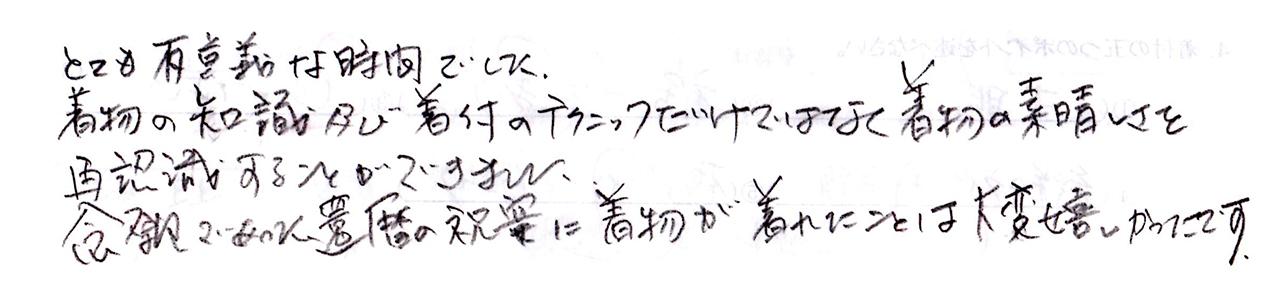 とても有意義な時間でした。
着物の知識及び着付のテクニックだけではなく着物の素晴しさを
再認識することができました。
念願であった還暦の祝宴に着物が着れたことは大変嬉しかったです。